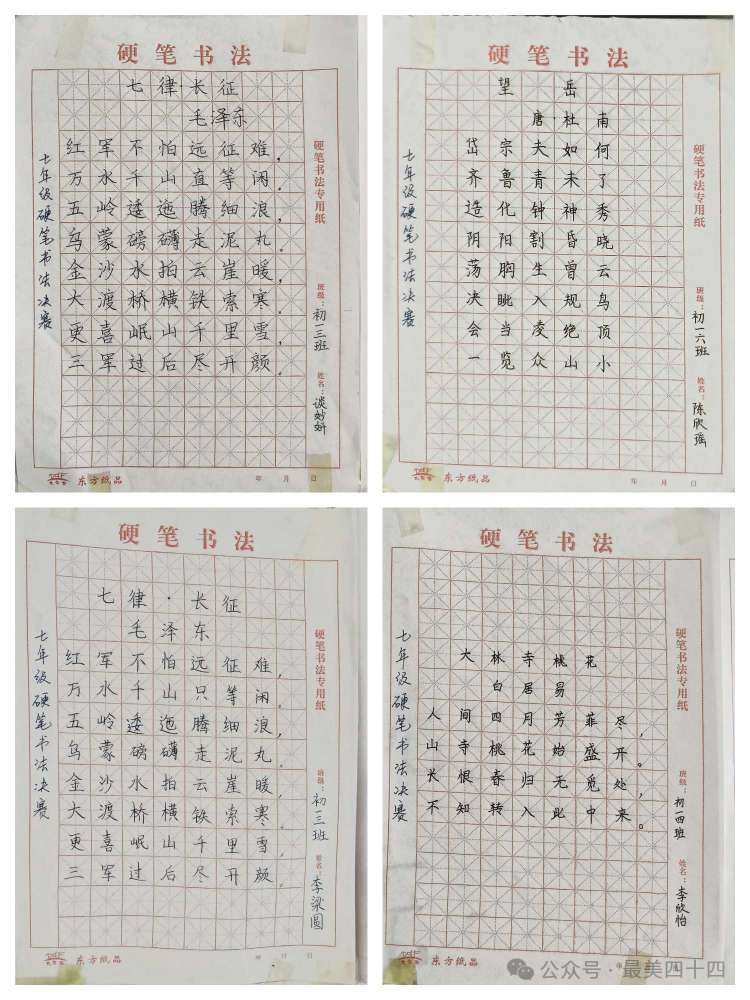 硬笔书法
七律·长征
毛泽东
红军不怕远征难，
万水千山直等闲.
五岭逶迤腾细浪，
乌蒙磅礴走泥丸.
金沙水拍云崖暖，
大渡桥横铁索寒.
更喜岷山千里雪，
三军过后尽开颜.
七年级硬笔书法决赛
硬笔书法专用纸
班级：初一三班
姓名：谈妙妍
东方纸品
年 月 日
硬笔书法
望岳
唐·杜南
岱宗夫如何
齐鲁青未了
造化钟神秀
阴阳割昏晓
荡胸生曾云
决眺入规鸟
会当凌绝顶
一览众山小
七年级硬笔书法决赛
硬笔书法专用纸
班级：初一六班
姓名：陈欣瑶
东方纸品
年 月 日
硬笔书法
七律·长征
毛泽东
红军不怕远征难，
万水千山只等闲.
五岭逶迤腾细浪，
乌蒙磅礴走泥丸.
金沙水拍云崖暖，
大渡桥横铁索寒.
更喜岷山千里雪，
三军过后尽开颜.
七年级硬笔书法决赛
硬笔书法专用纸
班级：初一三班
姓名：李梁圆
东方纸品
年 月 日
硬笔书法
大林寺桃花
白居易
人间四月芳菲尽，
山寺桃花始盛开。
长恨春归无觅处，
不知转入此中来。
七年级硬笔书法决赛
硬笔书法专用纸
班级：初一四班
姓名：李欣怡
东方纸品
年 月 日
公众号·最美四十四